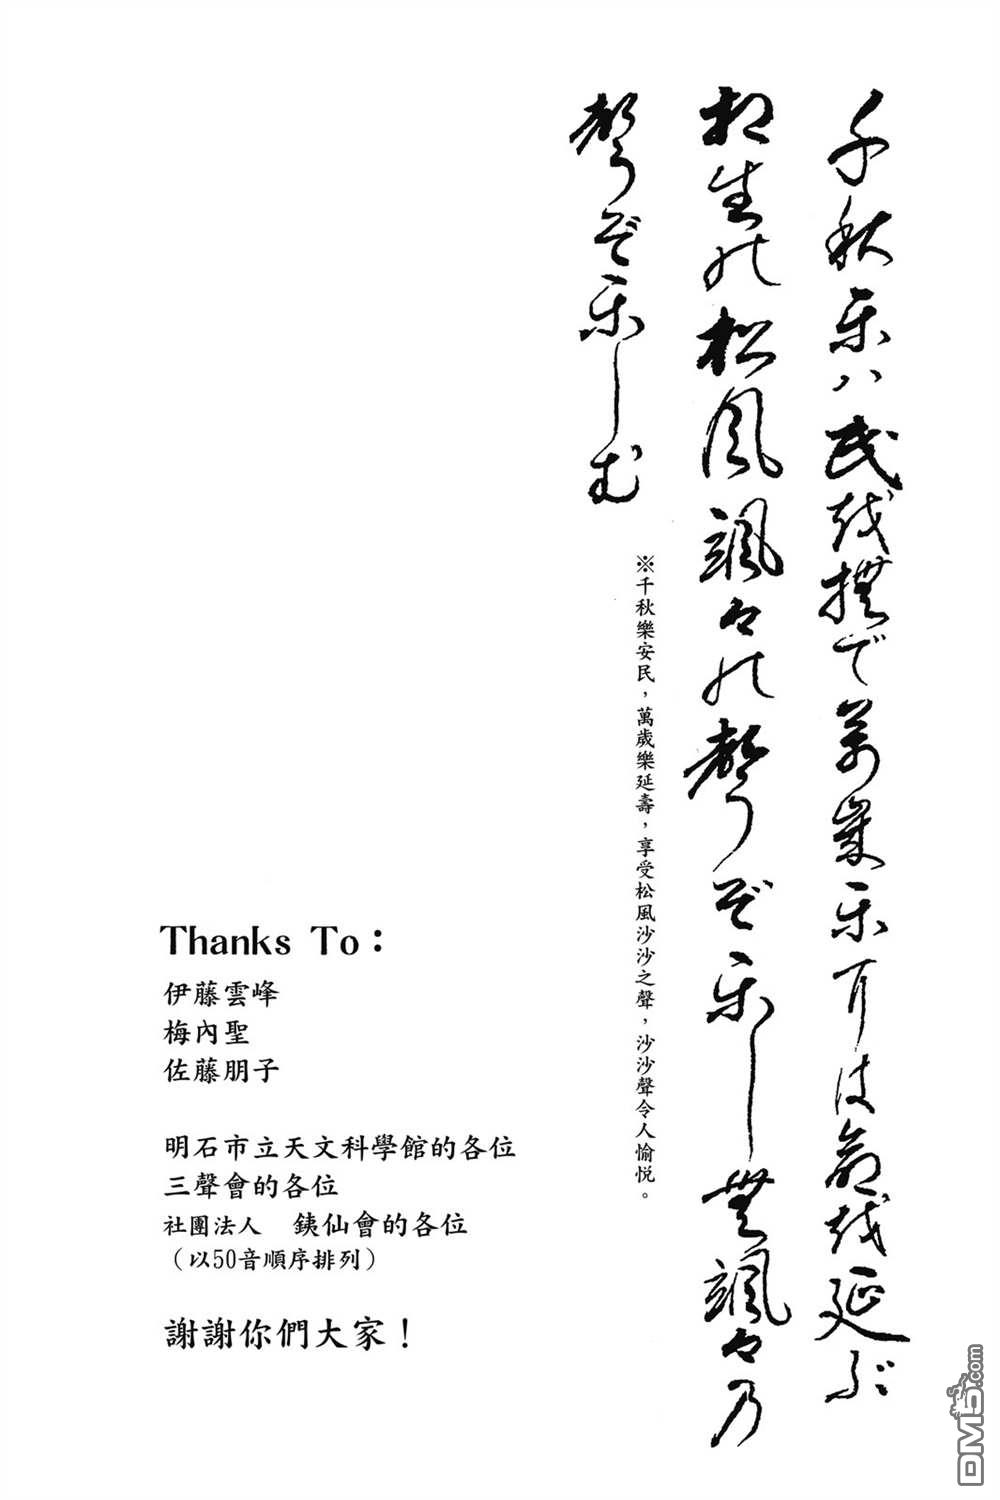 千秋楽ハ民越撫で萬歳楽耳は命越延ぶ
相生能松風颯々能聲ぞ楽しむ颯々乃
聲ぞ楽しむ
※千秋樂安民，萬歲樂延壽，享受松風沙沙之聲，沙沙聲令人愉悅。
Thanks To：
伊藤雲峰
梅內聖
佐藤朋子
明石市立天文科學館的各位
三聲會的各位
社團法人　銕仙會的各位
（以50音順序排列）
謝謝你們大家！
DM5.com